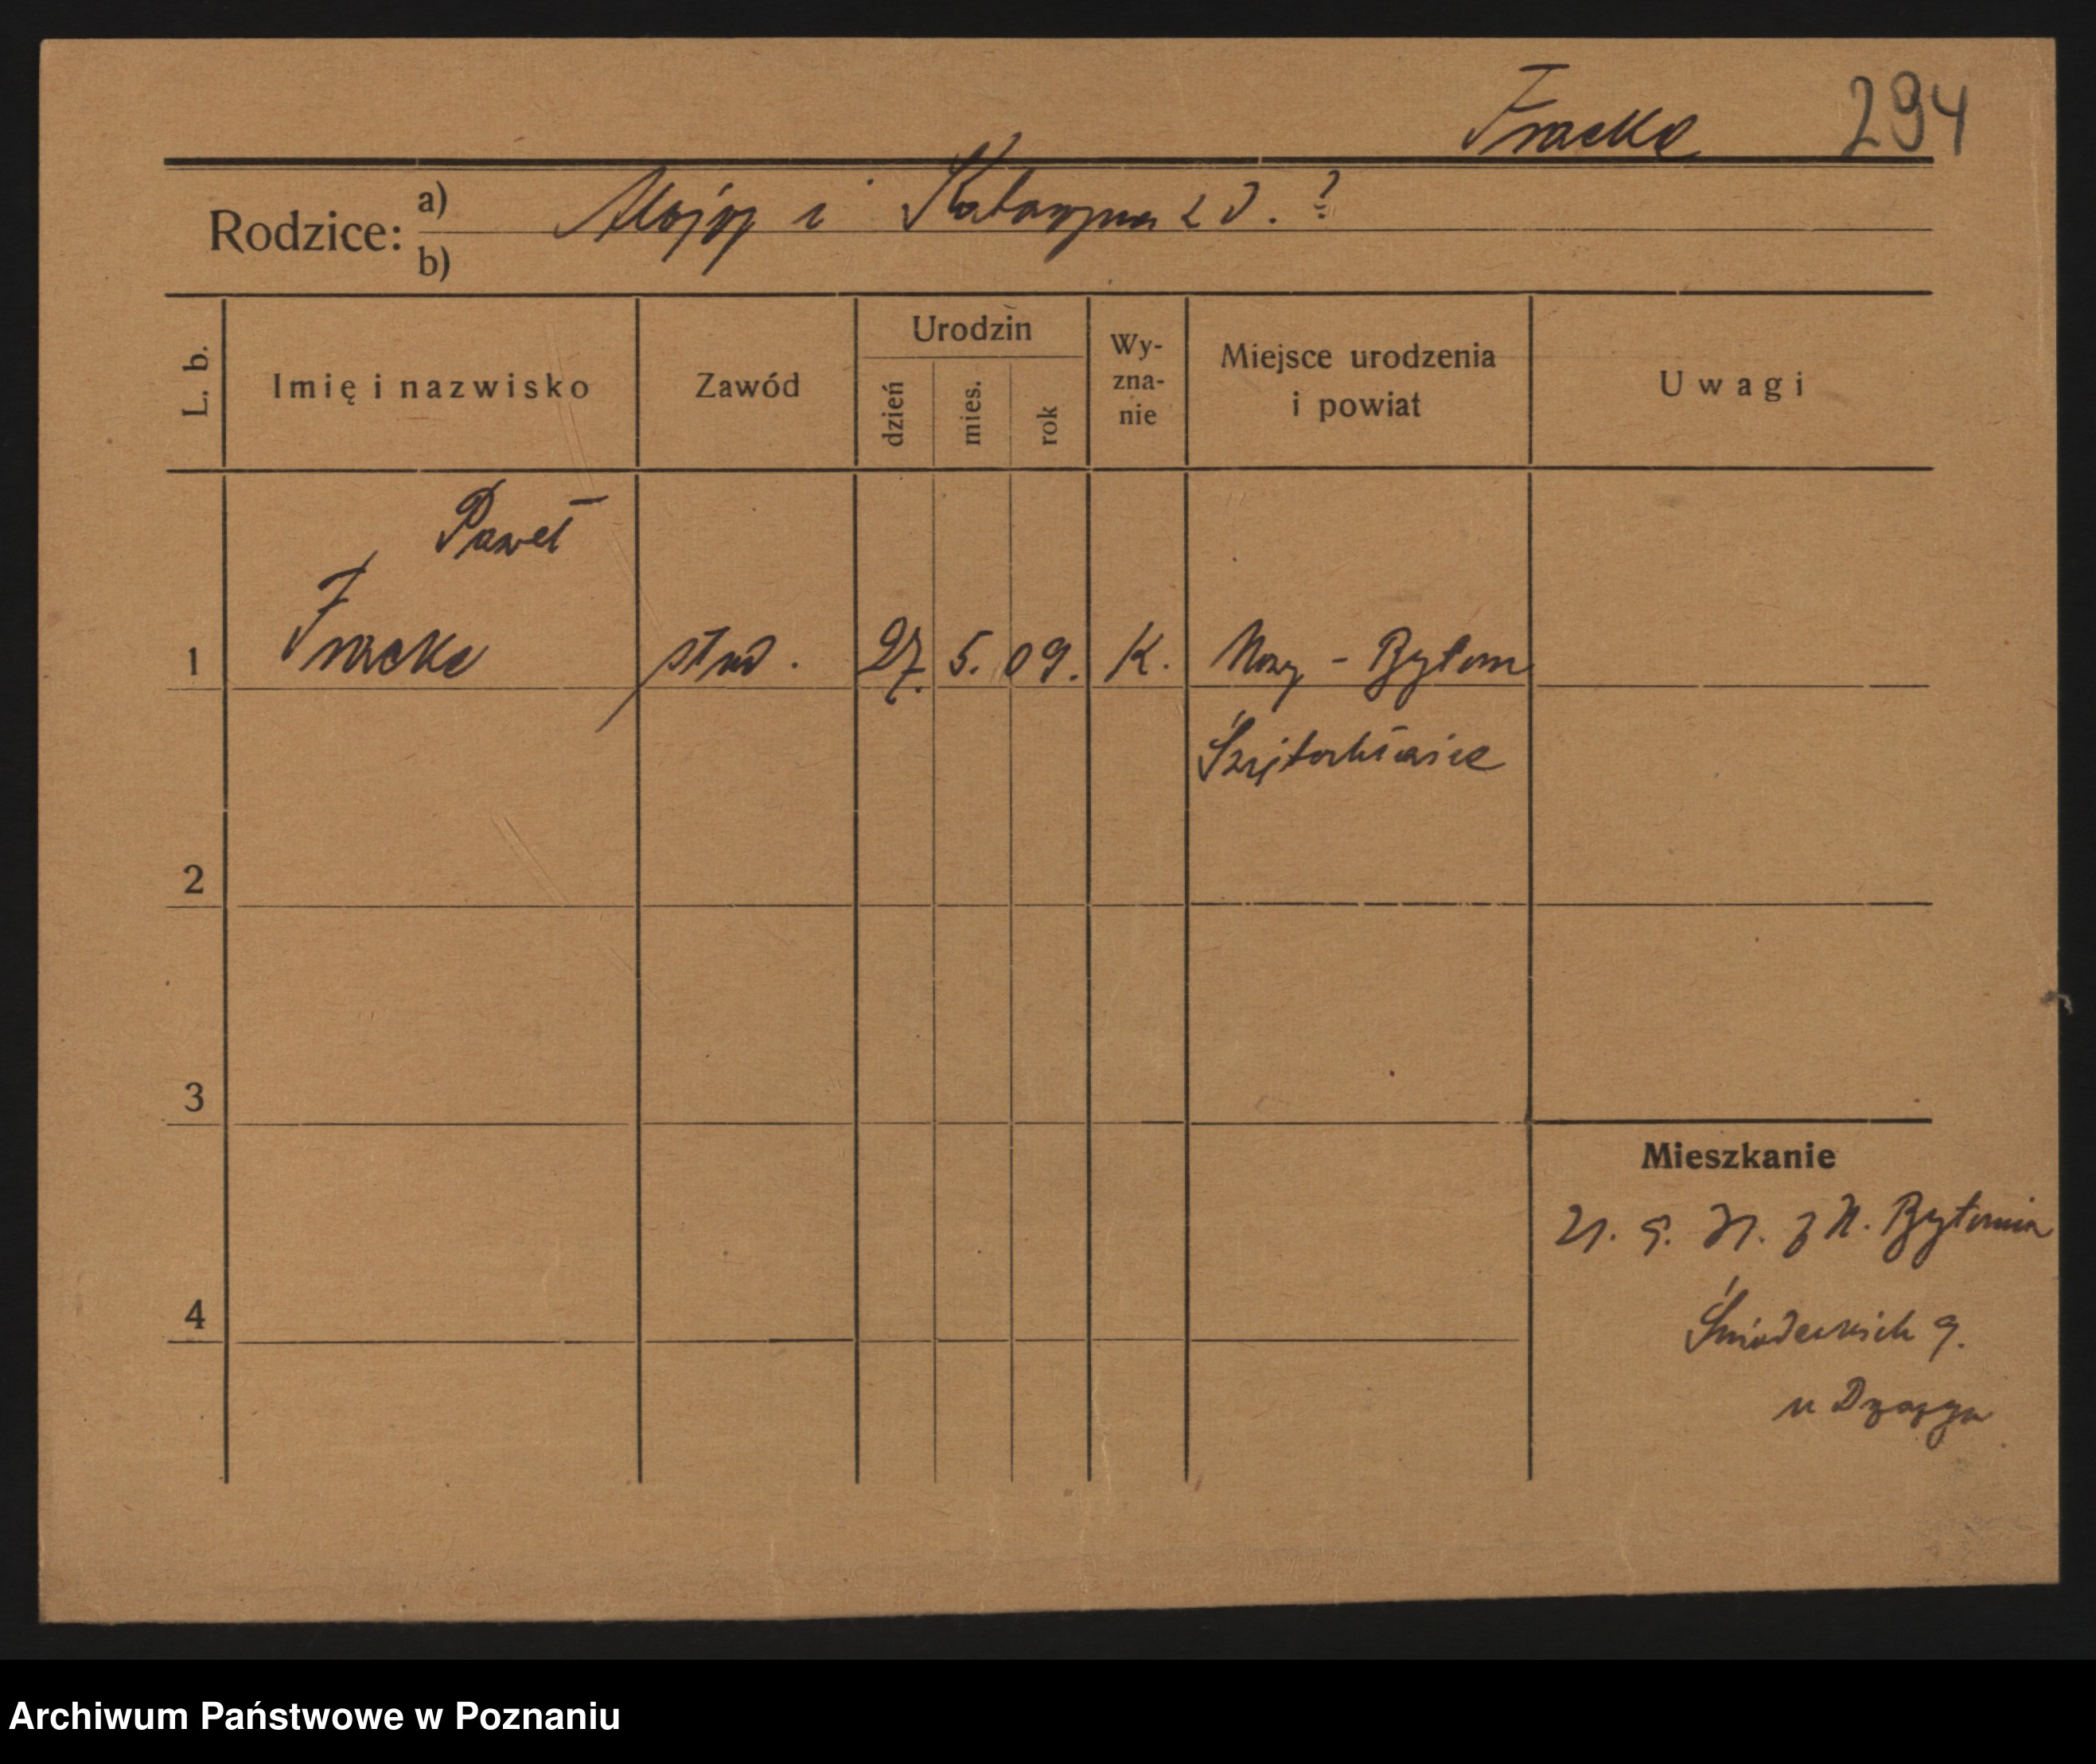 Fracke 294
Rodzice: a) Alojzy i Katarzyna z d. ?
b)
L. b.
Imię i nazwisko
Zawód
Urodzin
dzień
mies.
rok
Wy-
zna-
nie
Miejsce urodzenia
i powiat
Uwagi
Paweł
1 Fracke stud. 27. 5. 09. K. Nowy - Bytom
Świętochłowice
2
3
4
Mieszkanie
21. 9. 31. z N. Bytomia
Śniadeckich 9.
u
Archiwum Państwowe w Poznaniu